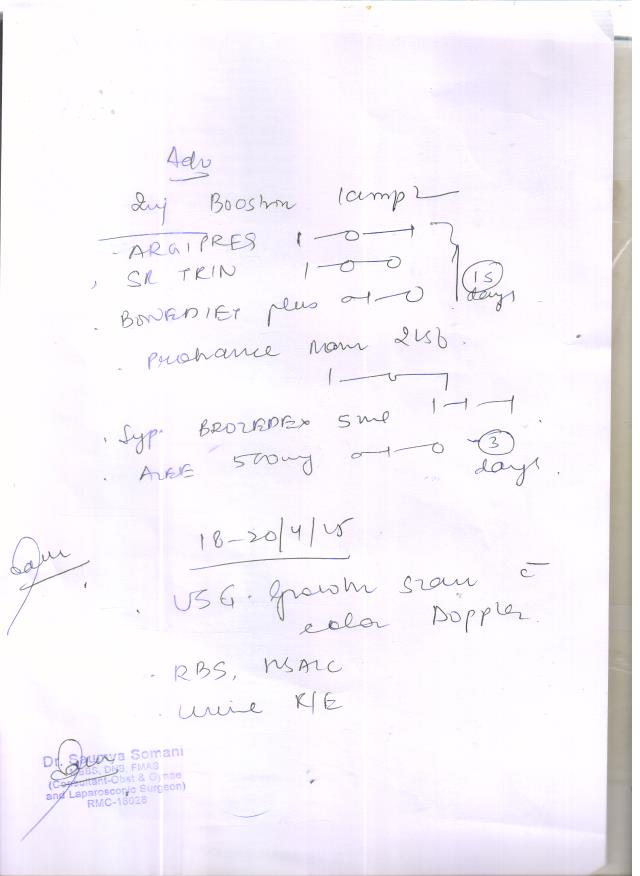 Adv
Inj Boostrin 1amp
- ARGIPRES 1-0-1
SR TRIN 1-0-0
15 days
. BONEDIET plus 0-1-0
. Prohance Mom
1-0-1
. Syp. BROZEDEX 5 ml 1-1-1
. AZEE 500mg 0-1-0 - 3 days.
18-20/4/25
. USG. Growth Scan c̄
color Doppler.
. RBS, HbA1C
. Urine R/E
Dr. Saumya Somani
MBBS, DNB, FMAS
(Consultant-Obst & Gynae
and Laparoscopic Surgeon)
RMC-18028